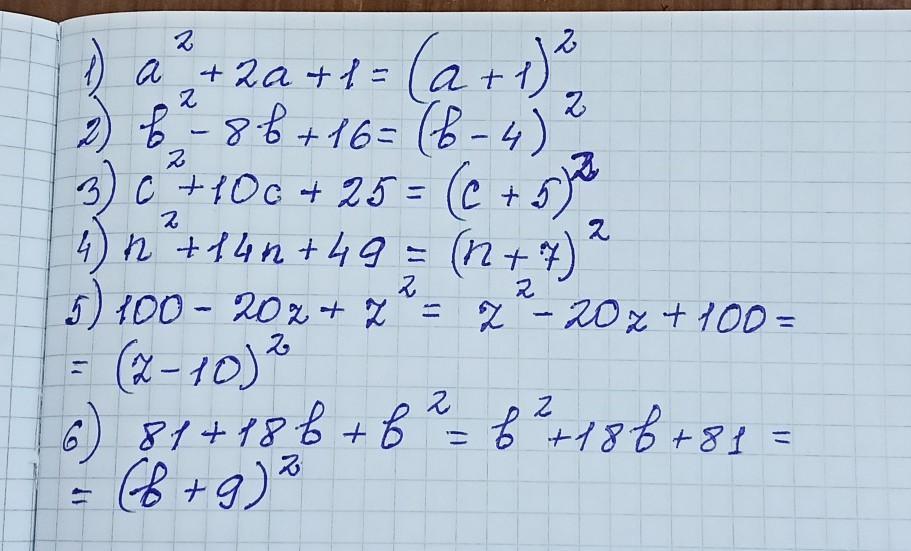 1) a² + 2a + 1 = (a + 1)²
2) b² - 8b + 16 = (b - 4)²
3) c² + 10c + 25 = (c + 5)²
4) n² + 14n + 49 = (n + 7)²
5) 100 - 20z + z² = z² - 20z + 100 =
= (z - 10)²
6) 81 + 18b + b² = b² + 18b + 81 =
= (b + 9)²